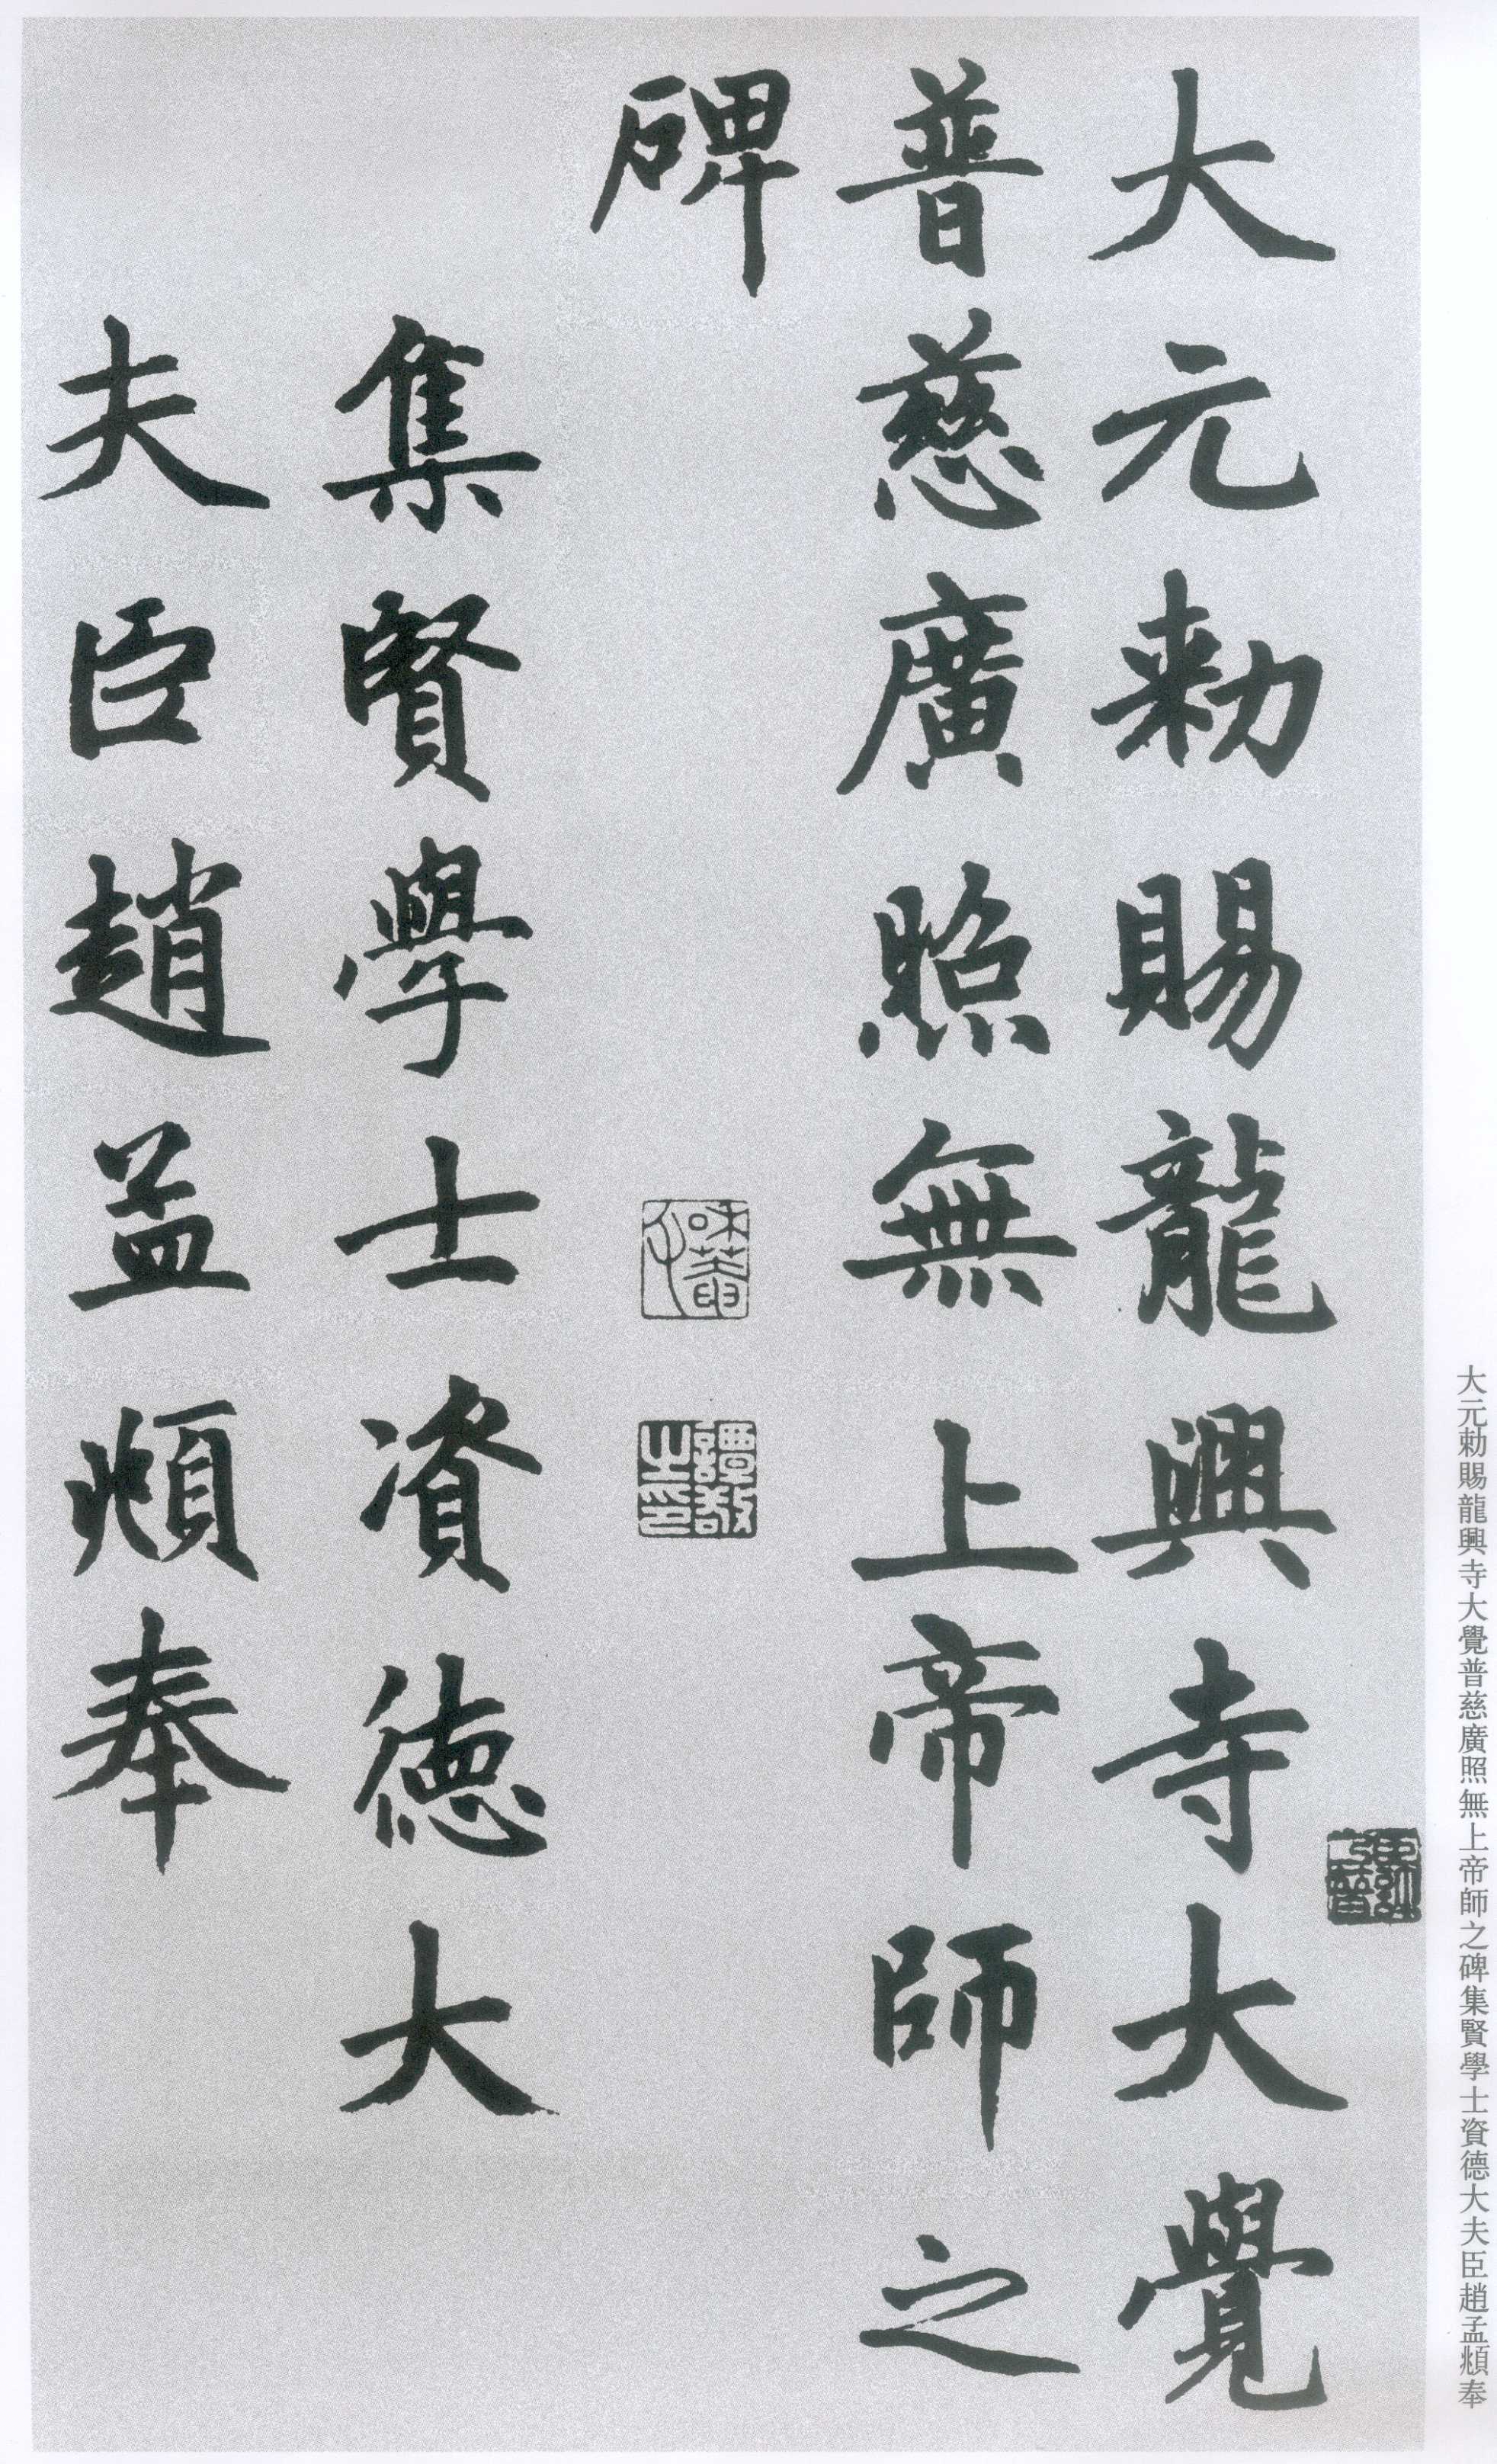 大元勅賜龍興寺大覺
普慈廣照無上帝師之
碑
集賢學士資德大
夫臣趙孟頫奉
大元勅賜龍興寺大覺普慈廣照無上帝師之碑集賢學士資德大夫臣趙孟頫奉